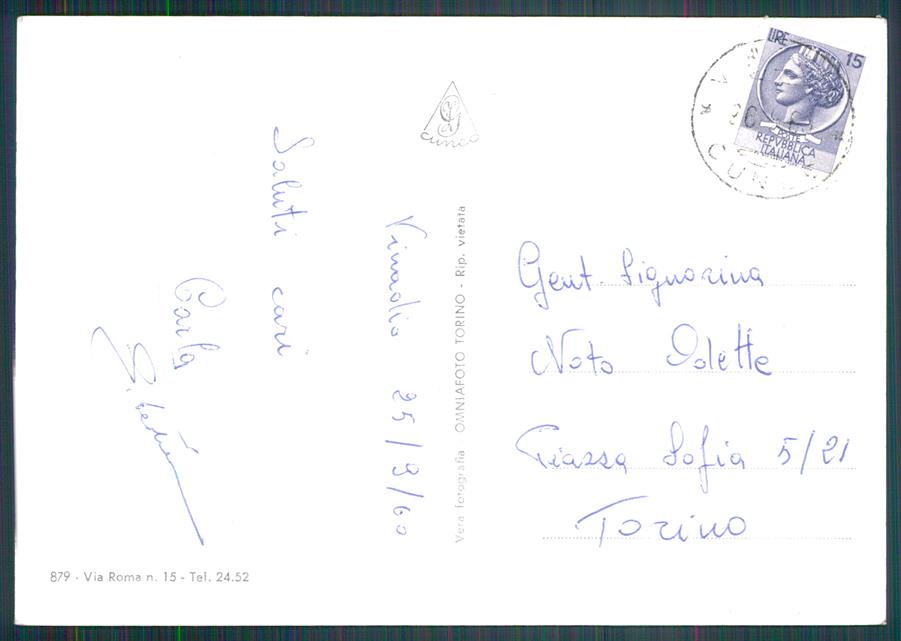 LIRE 15
POSTE
REPVBBLICA
ITALIANA
CUN
cuneo
Vinadio 25/9/60
Saluti cari
Carla
Vera fotografia - OMNIAFOTO TORINO - Rip. vietata
Gent. Signorina
Noto Odette
Piazza Sofia 5/21
Torino
879 - Via Roma n. 15 - Tel. 24.52